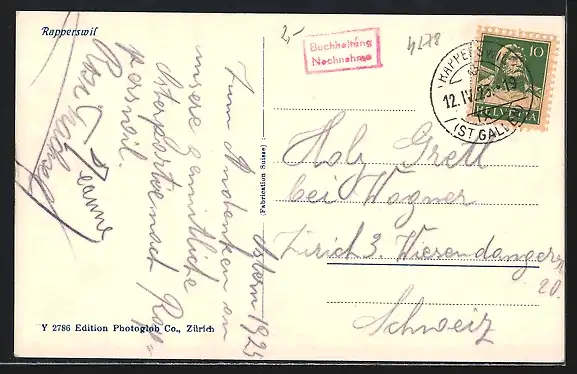 Rapperswil
2,-
Buchhaltung
Nachnahme
4278
HELVETIA
10
RAPPERSWIL
12.IV.25.-19
(ST.GALLEN)
Ostern 1925
Zum Andenken an
unsere gemütliche
Osterpartie nach Rap-
perswil.
Jeanne
Holz Gretl
bei Wagner
Zürich 3. Wiesendangerstr
20.
Schweiz
(Fabrication Suisse)
Y 2786 Edition Photoglob Co., Zürich